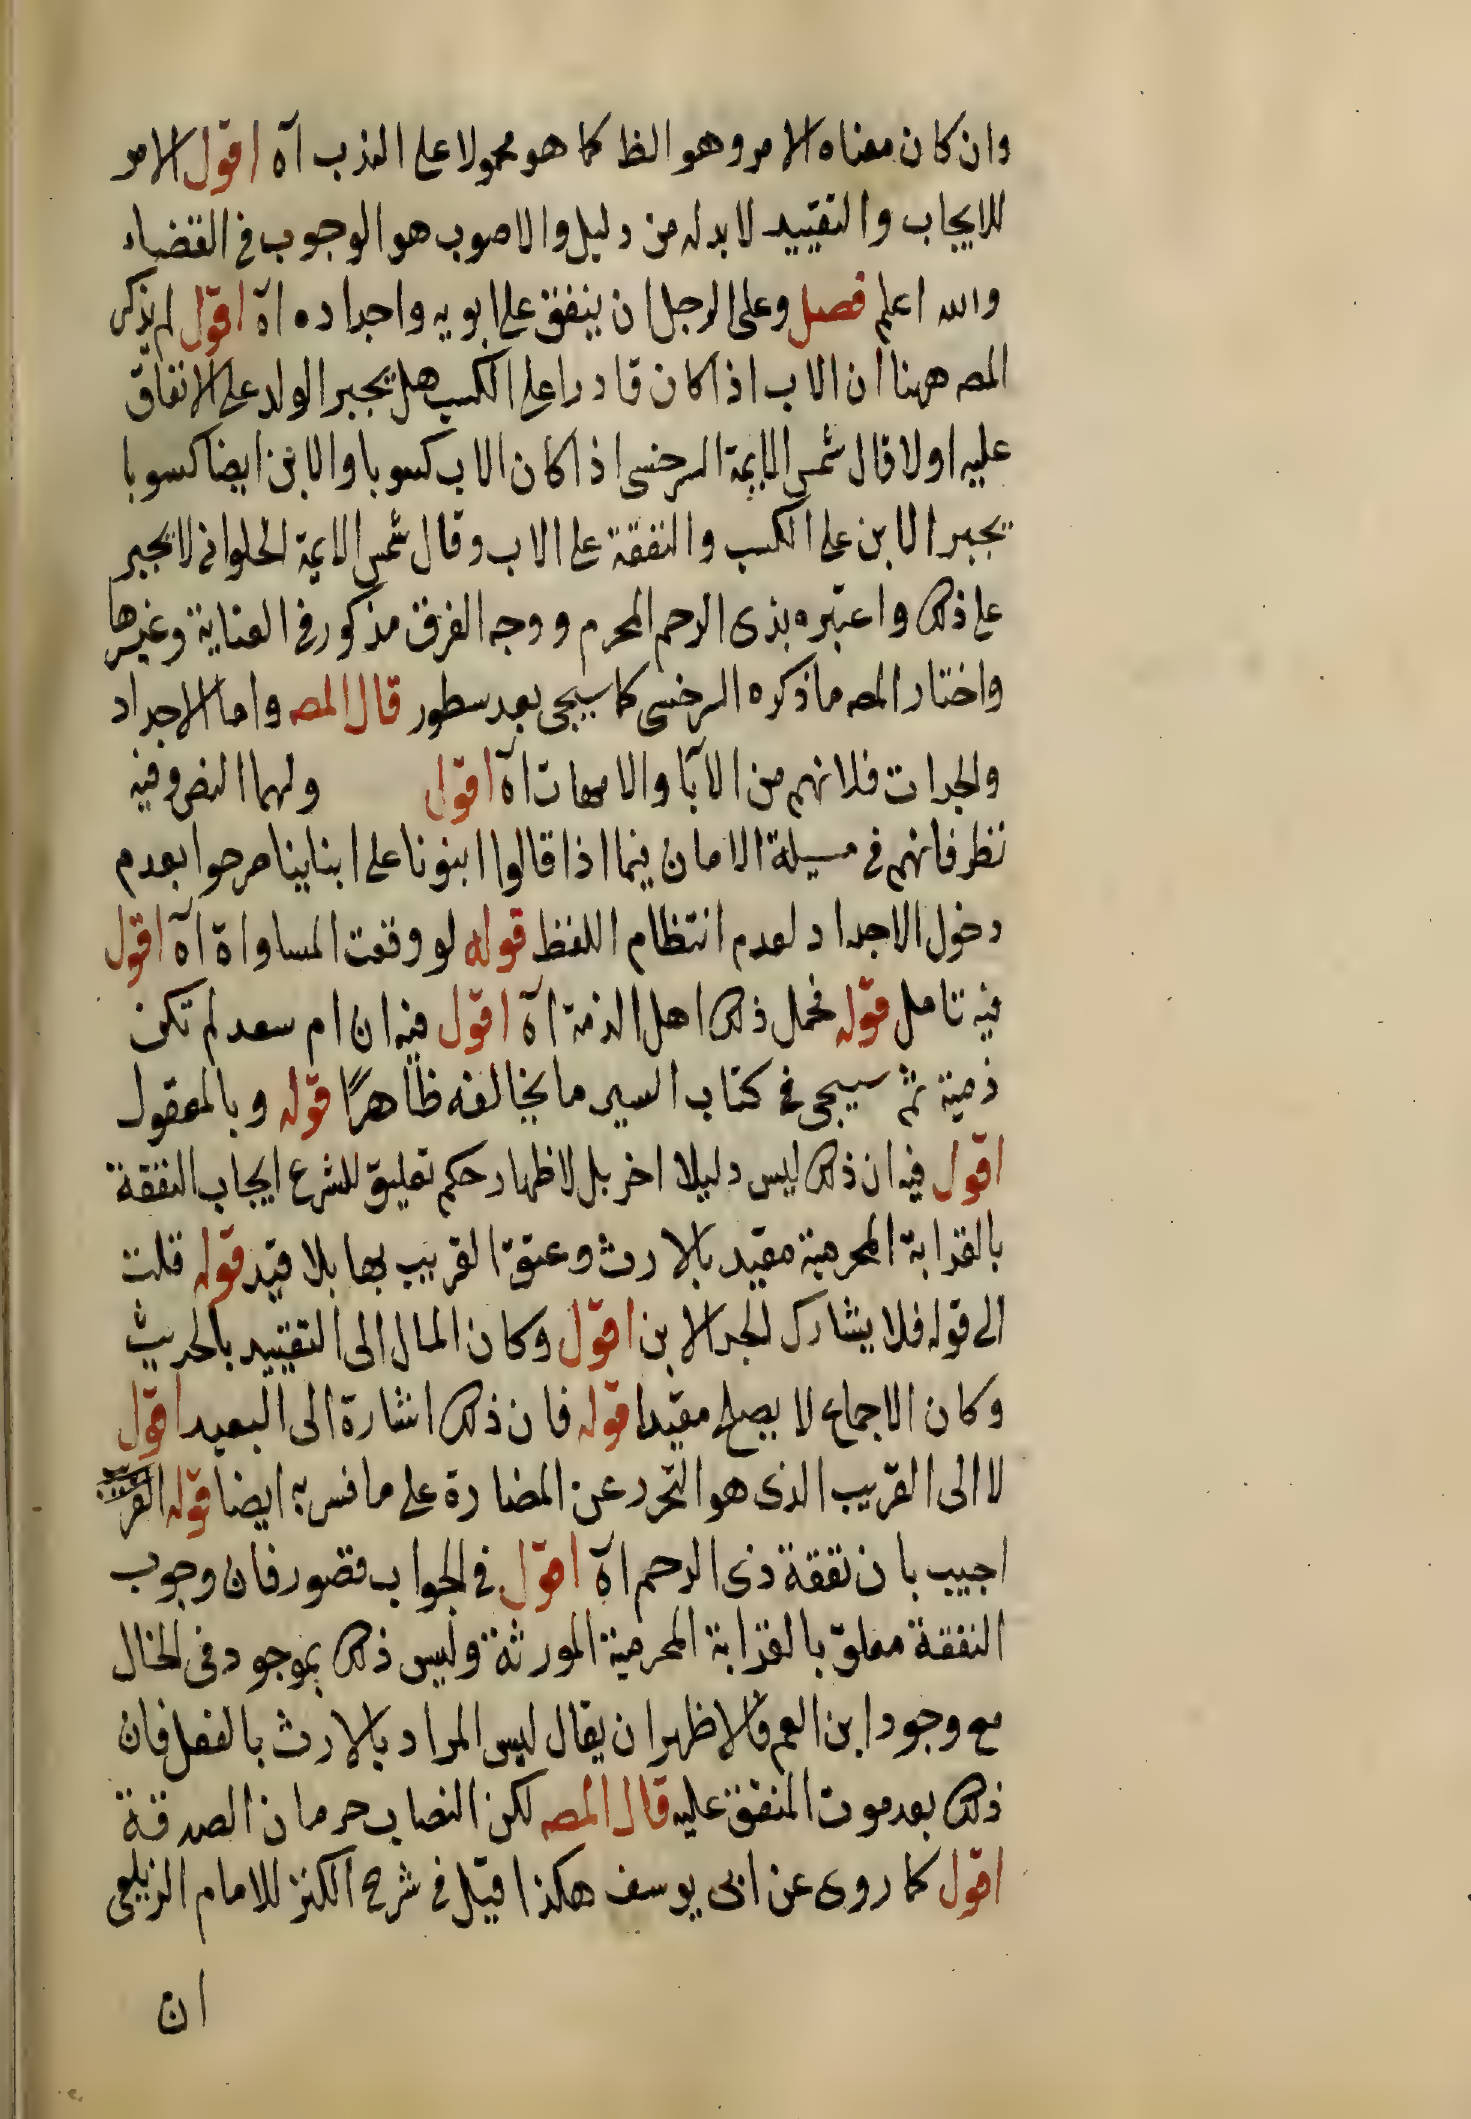 وان كان معناه الامر وهو الظ كما هو محمولا على الندب آه اقول الامر
للايجاب والتقييد لا بد له من دليل والاصوب هو الوجوب في القضاء
والله اعلم فصل وعلى الرجل ان ينفق على ابويه واجداده آه اقول لم يذكر
المصه ههنا ان الاب اذا كان قادرا على الكسب هل يجبر الولد على الانفاق
عليه اولا قال شمس الايمة السرخسى اذا كان الاب كسوبا والابن ايضا كسوبا
يجبر الابن على الكسب والنفقة على الاب وقال شمس الايمة الحلوانى لا يجبر
على ذلك واعتبره بذى الرحم المحرم ووجه الفرق مذكور في العناية وغيرها
واختار المصه ما ذكره السرخسى كما سيجى بعد سطور قال المصه واما الاجداد
والجدات فلانهم من الابآ والامهات آه اقول ولهما النص وفيه
نظر فانهم في مسيلة الامان فيما اذا قالوا امنونا على ابناينا صرحوا بعدم
دخول الاجداد لعدم انتظام اللفظ قوله لو وقعت المساواة آه اقول
فيه تامل قوله فحمل ذلك اهل الذمة آه اقول فيه ان ام سعد لم تكن
ذمية ثم سيجى في كتاب السير ما يخالفه ظاهرًا قوله وبالمعقول
اقول فيه ان ذلك ليس دليلا اخر بل لاظهار حكم تعليق الشرع ايجاب النفقة
بالقرابة المحرمية مقيد بالارث وعتق القريب بها بلا قيد قوله قلت
الى قوله فلا يشارك الجد الابن اقول وكان المال الى التقييد بالحديث
وكان الاجماع لا يصلح مقيدا قوله فان ذلك اشارة الى البعيد اقول
لا الى القريب الذى هو التحرر عن المضارة على ما فسر به ايضا قوله
اجيب بان نفقة ذى الرحم آه اقول في الجواب قصور فان وجوب
النفقة معلق بالقرابة المحرمية المورثة وليس ذلك بموجود في الخال
مع وجود ابن العم فالاظهر ان يقال ليس المراد بالارث بالفعل فان
ذلك بعد موت المنفق عليه قال المصه لكن النصاب حرمان الصدقة
اقول كما روى عن ابى يوسف هكذا قيل في شرح الكنز للامام الزيلعى
ان